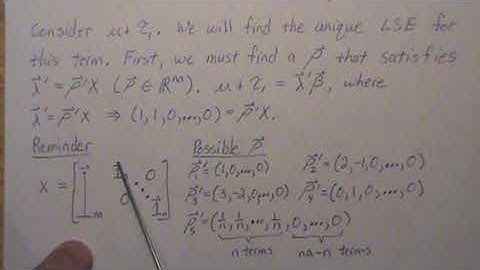 Consider μ + τ₁. We will find the unique LSE for
this term. First, we must find a p⃗ that satisfies
λ⃗' = p⃗'X (p⃗ ∈ ℝⁿᵃ). μ + τ₁ = λ⃗'β⃗, where
λ⃗' = p⃗'X ⇒ (1,1,0,...,0) = p⃗'X.
Reminder Possible p⃗
p⃗₁' = (1,0,...,0) p⃗₂' = (2,-1,0,...,0)
X = 1 na 1 0 0 1 n
p⃗₃' = (3,-2,0,...,0) p⃗₄' = (0,1,0,...,0)
p⃗₅' = (1/n, 1/n, ..., 1/n, 0,...,0)
n terms na-n terms